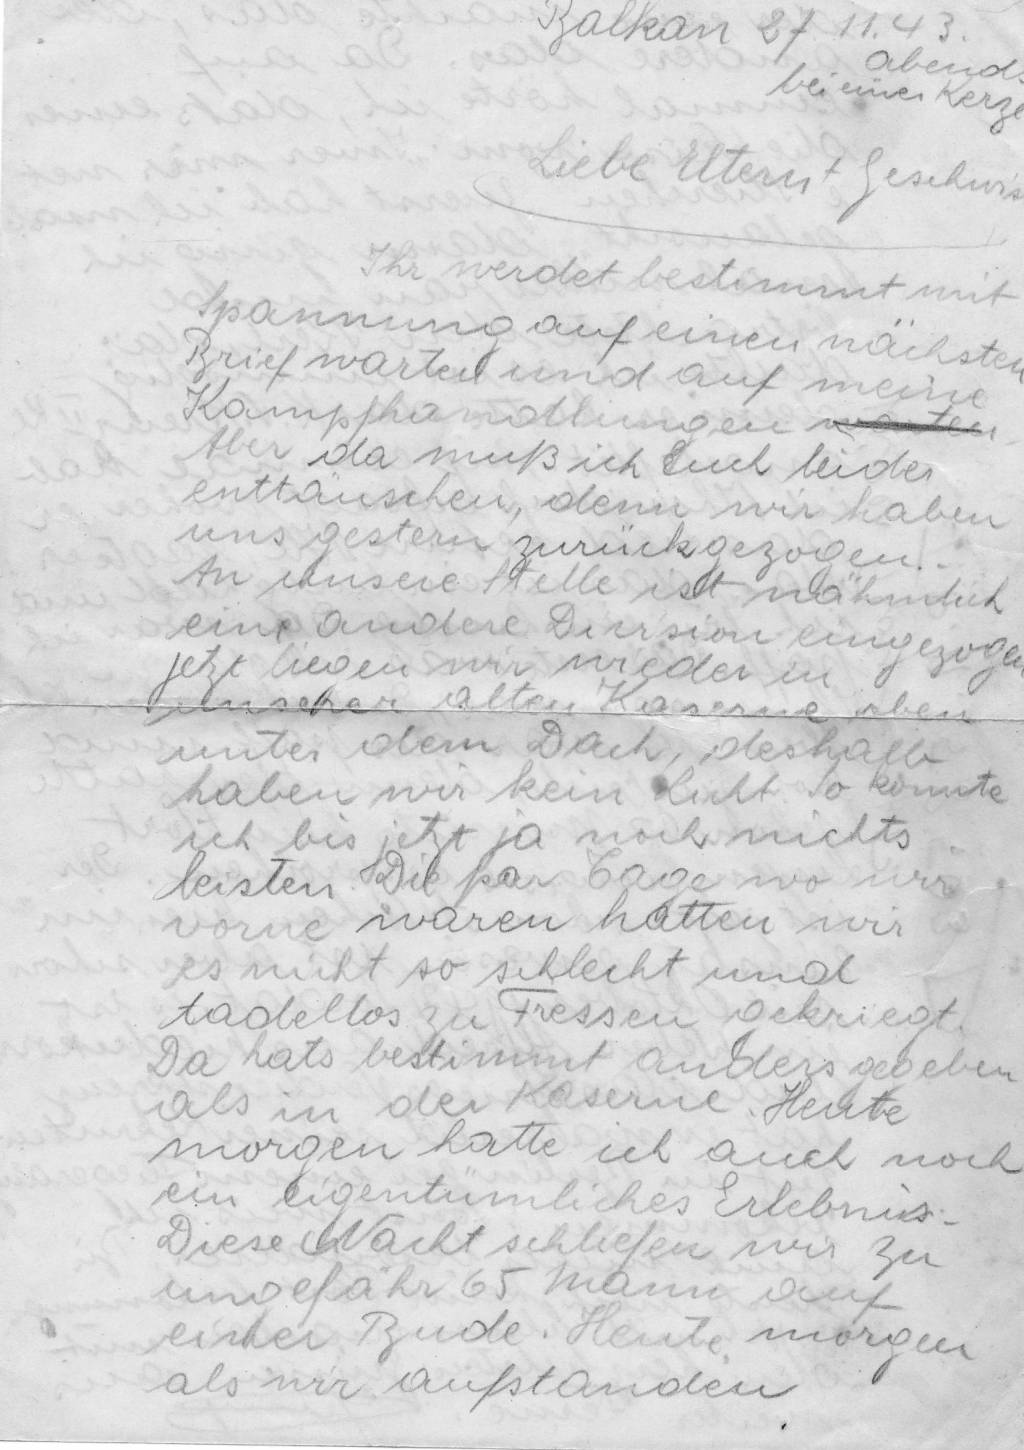 Balkan 27.11.43.
abends
bei einer Kerze
Liebe Eltern + Geschwis
Ihr werdet bestimmt mit
Spannung auf einen nächsten
Brief warten und auf meine
Kampfhandlungen warten.
Aber da muß ich Euch leider
enttäuschen, denn wir haben
uns gestern zurückgezogen.
An unsere Stelle ist nähmlich
eine andere Division eingezogen
jetzt liegen wir wieder in
unserer alten Kaserne oben
unter dem Dach, deshalb
haben wir kein Licht. So konnte
ich bis jetzt ja noch nichts
leisten. Die par Tage wo wir
vorne waren hatten wir
es nicht so schlecht und
tadellos zu Fressen gekriegt.
Da hats bestimmt anders gegeben
als in der Kaserne. Heute
morgen hatte ich auch noch
ein eigentümliches Erlebnis.
Diese Nacht schliefen wir zu
ungefähr 65 Mann auf
einer Bude. Heute morgen
als wir aufstanden